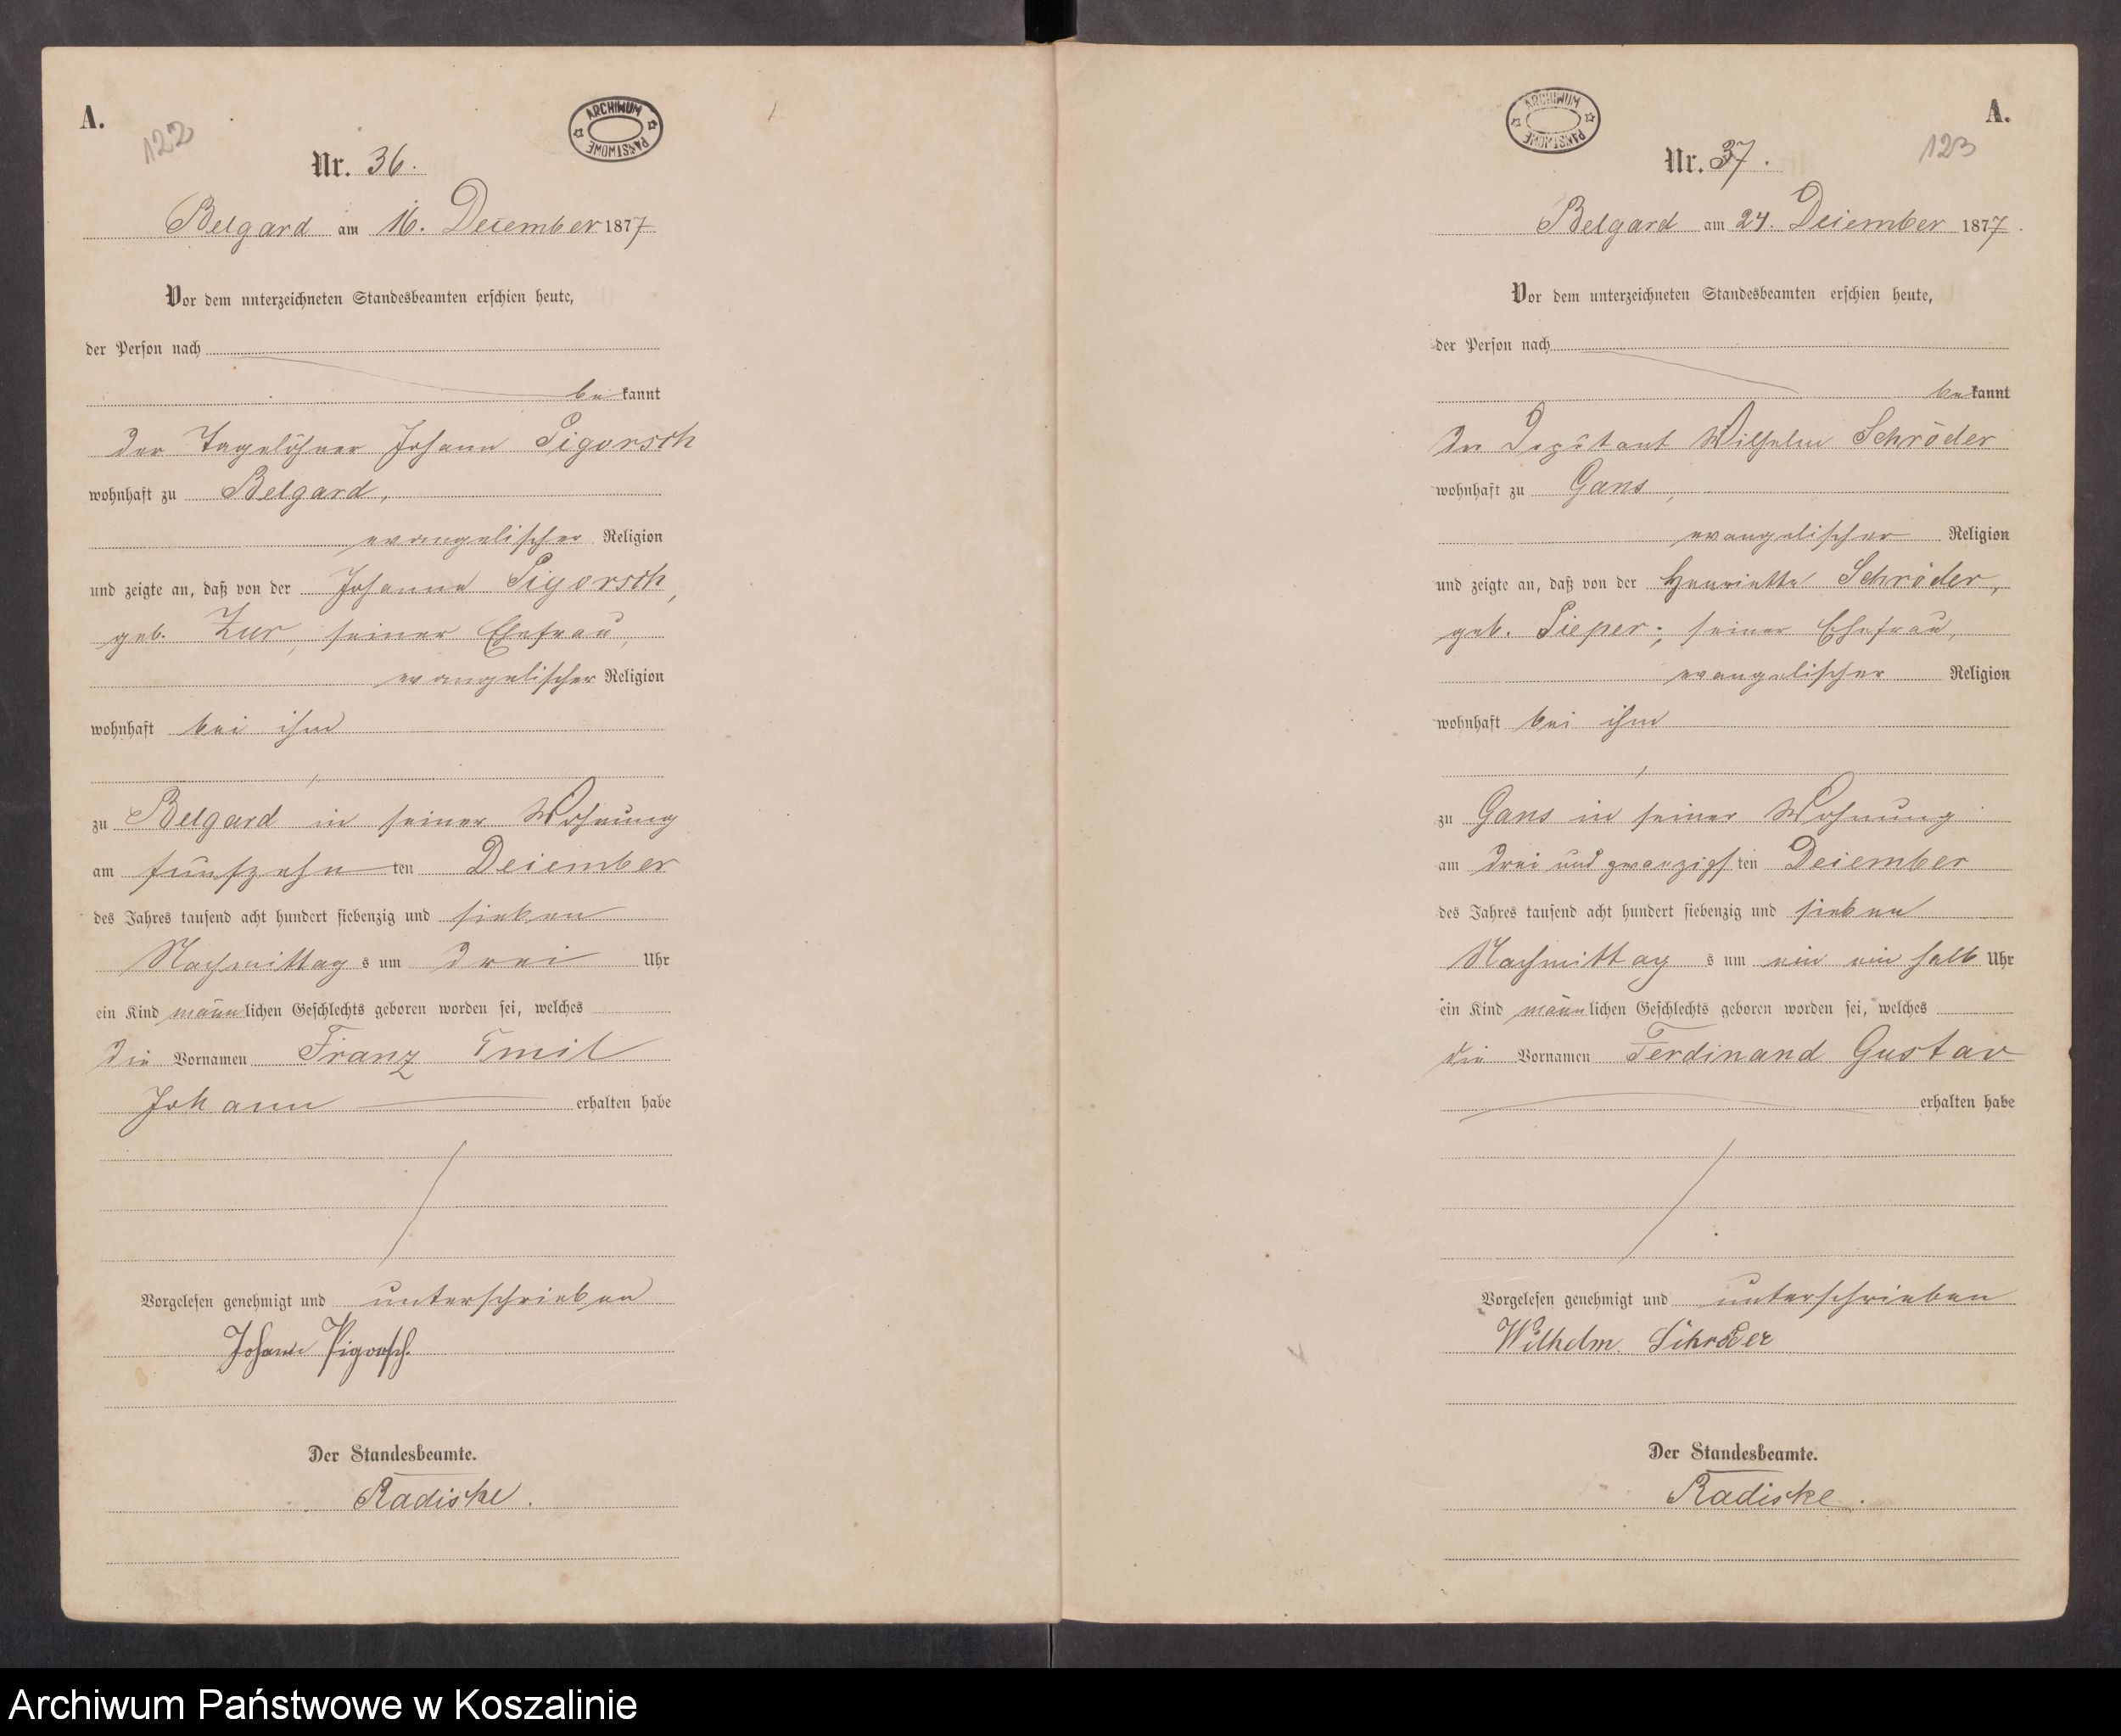 A.
122
ARCHIWUM PAŃSTWOWE
Nr. 36.
Belgard am 16. December 1877
Vor dem unterzeichneten Standesbeamten erschien heute,
der Person nach
bekannt
der Tagelöhner Johann Pigorsch
wohnhaft zu Belgard,
evangelischer Religion
und zeigte an, daß von der Johanna Pigorsch,
geb. Zur, seiner Ehefrau,
evangelischer Religion
wohnhaft bei ihm
zu Belgard in seiner Wohnung
am fünfzehnten December
des Jahres tausend acht hundert siebenzig und sieben
Nachmittags um drei Uhr
ein Kind männlichen Geschlechts geboren worden sei, welches
die Vornamen Franz Emil
Johann erhalten habe
Vorgelesen genehmigt und unterschrieben
Johann Pigorsch.
Der Standesbeamte.
Radiske.
A.
123
ARCHIWUM PAŃSTWOWE
Nr. 37.
Belgard am 24. December 1877.
Vor dem unterzeichneten Standesbeamten erschien heute,
der Person nach
bekannt
der Deputant Wilhelm Schröder
wohnhaft zu Gans,
evangelischer Religion
und zeigte an, daß von der Henriette Schröder,
geb. Pieper, seiner Ehefrau,
evangelischer Religion
wohnhaft bei ihm
zu Gans in seiner Wohnung
am drei und zwanzigsten December
des Jahres tausend acht hundert siebenzig und sieben
Nachmittags um ein ein halb Uhr
ein Kind männlichen Geschlechts geboren worden sei, welches
die Vornamen Ferdinand Gustav
erhalten habe
Vorgelesen genehmigt und unterschrieben
Wilhelm Schröder
Der Standesbeamte.
Radiske.
Archiwum Państwowe w Koszalinie